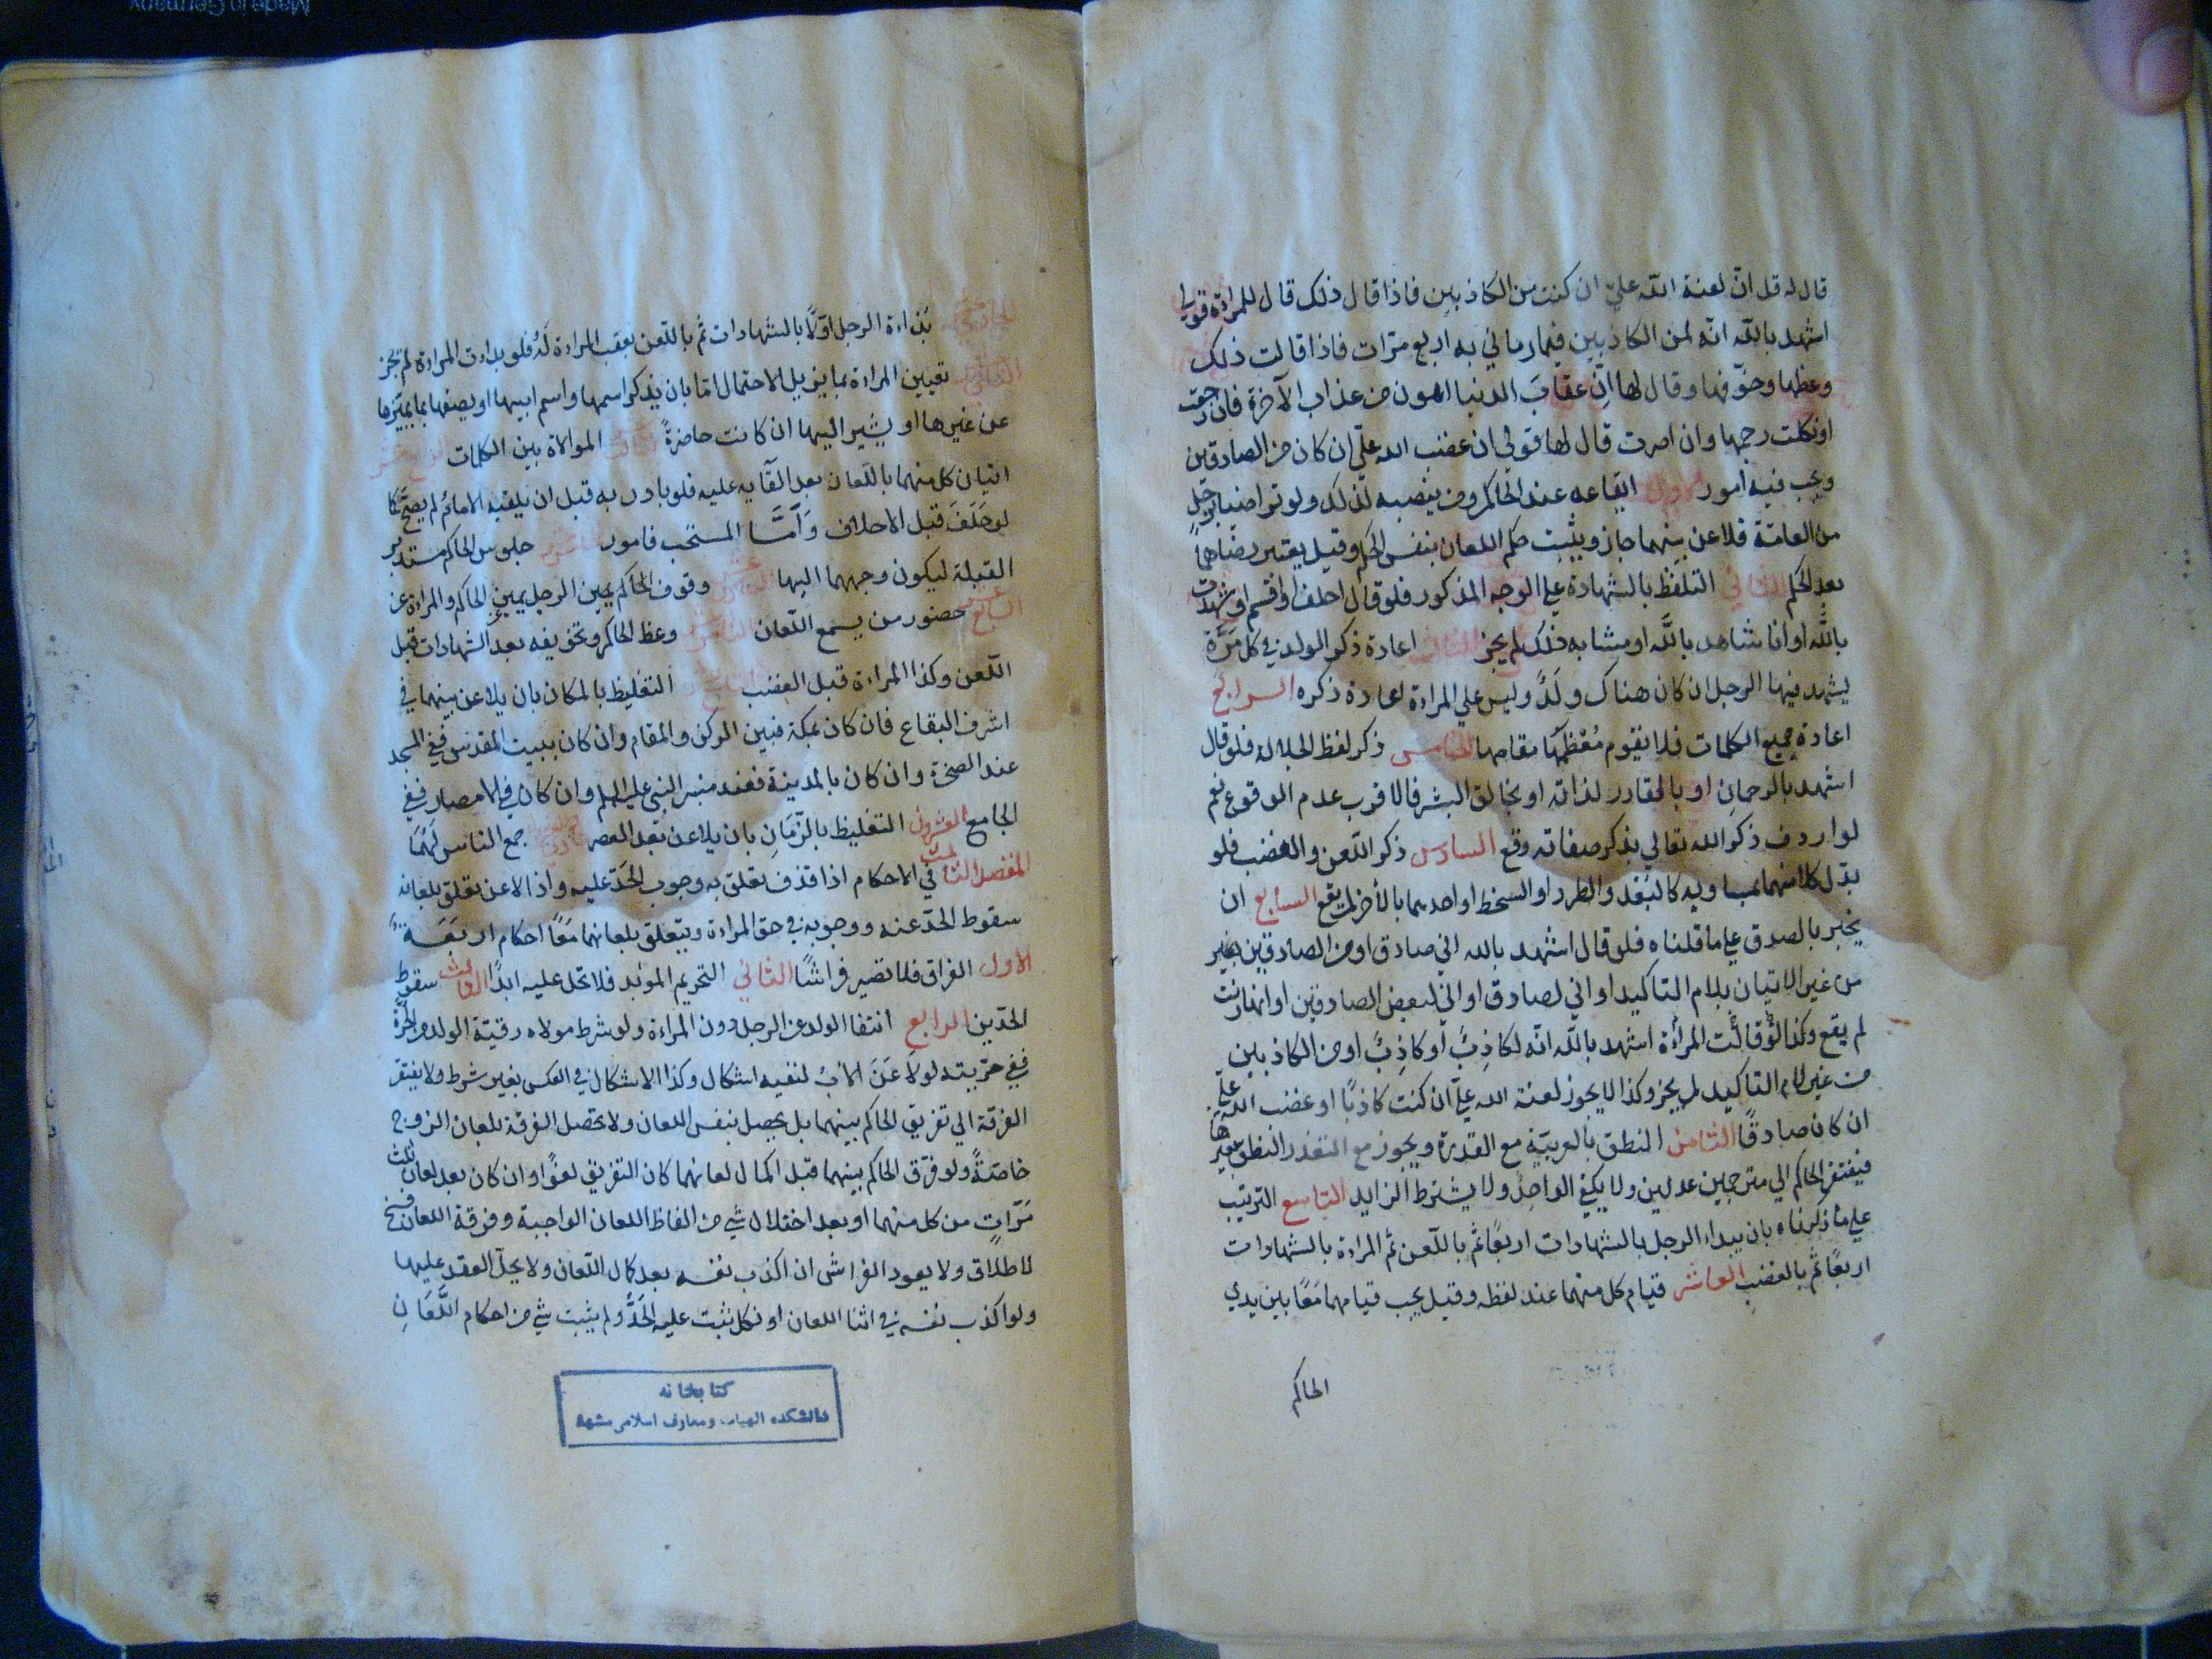 قال له قل ان لعنة الله علي ان كنت من الكاذبين فاذا قال ذلك قال للمراة قولي
اشهد بالله انه لمن الكاذبين فيما رماني به اربع مرات فاذا قالت ذلك
وعظها وخوفها وقال لها ان عقاب الدنيا اهون من عذاب الآخرة فان رجعت
او نكلت رجمها وان اصرت قال لها قولي ان غضب الله علي ان كان من الصادقين
ويجب فيه أمور الاول ايقاعه عند الحاكم او من ينصبه لذلك ولو تراضيا برجل
من العامة فلاعن بينهما جاز ويثبت حكم اللعان بنفس الحكم وقيل يعتبر رضاهما
بعد الحكم الثاني التلفظ بالشهادة علي الوجه المذكور فلو قال احلف او اقسم او شهدت
بالله او انا شاهد بالله او ما شابه ذلك لم يجز الثالث اعادة ذكر الولد في كل مرة
يشهد فيها الرجل ان كان هناك ولد وليس علي المراءة اعادة ذكره الرابع
اعادة جميع الكلمات فلا يقوم معظمها مقامها الخامس ذكر لفظ الجلاله فلو قال
اشهد بالرحمان او بالقادر لذاته او بخالق البشر فالاقرب عدم الوقوع نعم
لو اردف ذكر الله تعالي بذكر صفاته وقع السادس ذكر اللعن والغضب فلو
بدل كلا منهما بمساويه كالبعد والطرد او السخط او احدهما بالأخر لم يقع السابع ان
يخبر بالصدق علي ما قلناه فلو قال اشهد بالله اني صادق او من الصادقين بغير
من غير الاتيان بلام التاكيد او اني لصادق او اني لبعض الصادقين او انها زنت
لم يقع وكذا لو قالت المرأة اشهد بالله انه لكاذب او كاذب او من الكاذبين
من غير لام التاكيد لم يجز وكذا لا يجوز لعنة الله علي ان كنت كاذبا او غضب الله علي
ان كان صادقا الثامن النطق بالعربية مع القدرة ويجوز مع التعذر النطق بغيرها
فيفتقر الحاكم الي مترجمين عدلين ولا يكفي الواحد ولا يشترط الزايد التاسع الترتيب
علي ما ذكرناه بان يبداء الرجل بالشهادات اربعا ثم باللعن ثم المراءة بالشهادات
اربعا ثم بالغضب العاشر قيام كل منهما عند لفظه وقيل يجب قيامهما معا بين يدي
الحاكم
الحادي عشر بداءة الرجل اولا بالشهادات ثم باللعن بعقب المراءة له فلو بداءت المراءة لم تجز
الثاني تعيين المراءة بما يزيل الاحتمال اما بان يذكر اسمها واسم ابيها او يصفها بما يميزها
عن غيرها او يشير اليها ان كانت حاضرة الثالث الموالاة بين الكلمات الرابع عشر
اتيان كل منهما باللعان بعد القآيه عليه فلو بادر به قبل ان يلقيه الامام لم يصح كما
لو حلف قبل الاحلاف وأما المستحب فامور جلوس الحاكم مستدبر
القبلة ليكون وجههما اليها وقوف الحاكم يمين الرجل يمين الحاكم والمراءة عن
السابع حضور من يسمع اللعان وعظ الحاكم وتخويفه بعد الشهادات قبل
اللعن وكذا المراءة قبل الغضب التغليظ بالمكان بان يلاعن بينهما في
اشرف البقاع فان كان بمكة فبين الركن والمقام وان كان ببيت المقدس ففي المسجد
عند الصخرة وان كان بالمدينة فعند منبر النبي عليه السلم وان كان في الامصار ففي
الجامع العشرون التغليظ بالزمان بان يلاعن بعد العصر جمع الناس لهما
المفصل الثالث في الاحكام اذا قذف تعلق به وجوب الحد عليه واذا لاعن تعلق بلعانه
سقوط الحد عنه ووجوبه في حق المراءة ويتعلق بلعانهما معا احكام اربعة
الاول الفراق فلا تصير فراشا الثاني التحريم الموبد فلا تحل عليه ابدا الثالث سقوط
الحدين الرابع انتفا الولد عن الرجل دون المراءة ولو شرط مولاه رقية الولد من الحرة
ففي حريته لو لاعن الاب لنفيه اشكال وكذا الاشكال في العكس بغير شرط ولا يفتقر
الفرقة الي تفريق الحاكم بينهما بل يحصل بنفس اللعان ولا تحصل الفرقة بلعان الزوج
خاصة ولو فرق الحاكم بينهما قبل اكمال لعانهما كان التفريق لغوا وان كان بعد لعان ثلث
مرات من كل منهما او بعد اختلال شي من الفاظ اللعان الواجبة وفرقة اللعان فسخ
لا طلاق ولا يعود الفراش ان اكذب نفسه بعد كمال اللعان ولا يحل العقد عليها
ولو اكذب نفسه في اثنا اللعان او نكل ثبت عليه الحد ولم يثبت شي من احكام اللعان
كتابخانه
دانشكده الهيات ومعارف اسلامى مشهد
Made in Germany